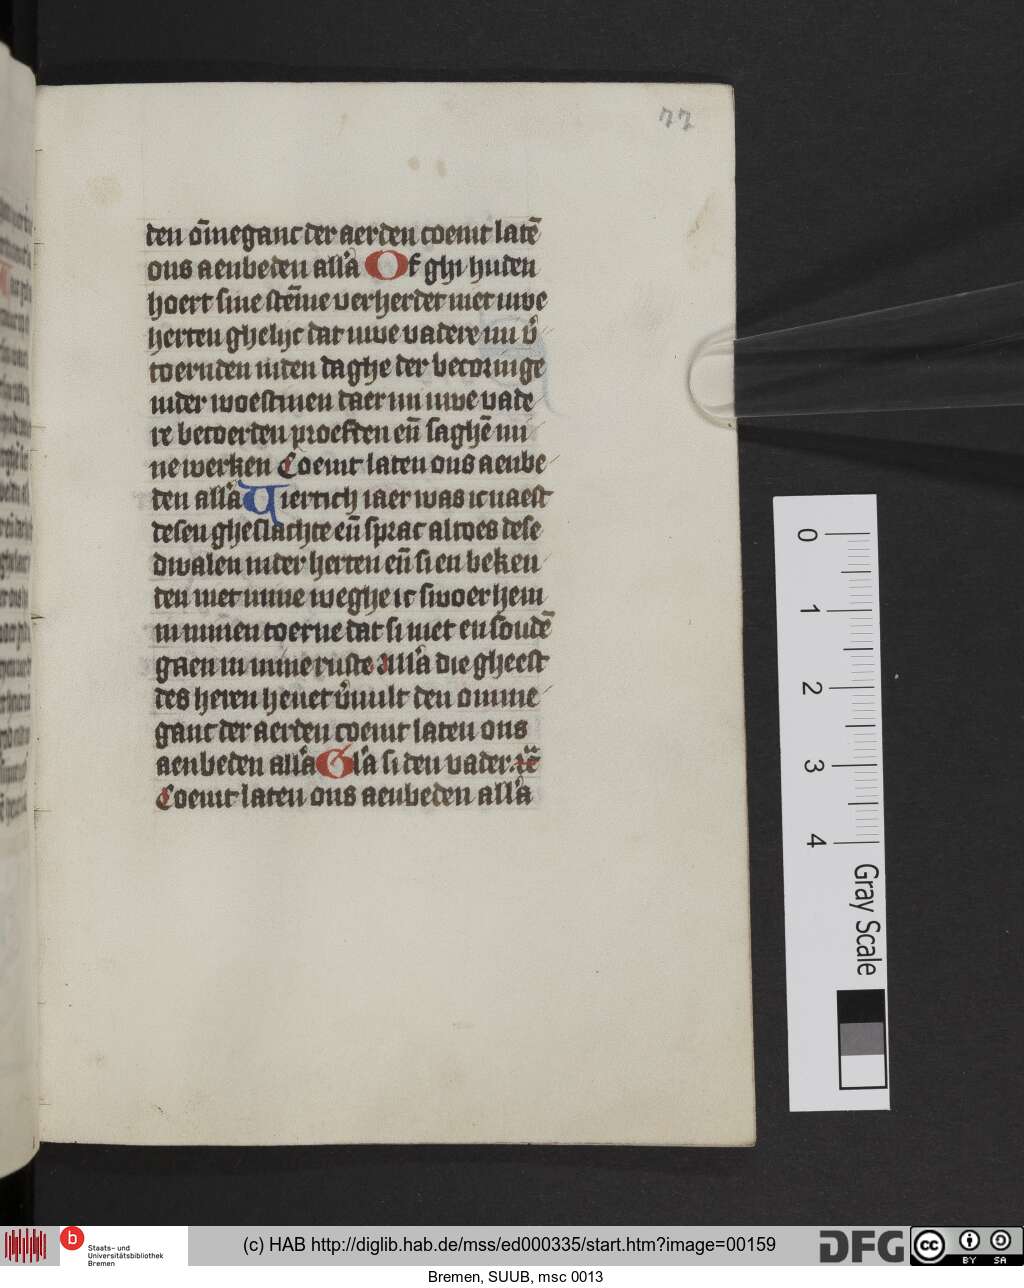 77
den ōmeganc der aerden coemt latē
ons aenbeden all'a Of ghi huden
hoert sine stēme verherdet niet uwe
herten ghelijc dat uwe vadere mi v'
toernden inden daghe der becoringe
inder woestinen daer mi uwe vade
re becoerden proefden eñ saghē mi
ne werken Coemt laten ons aenbe
den all'a Viertich iaer was ic naest
desen gheslachte eñ sprac altoes dese
dwalen inder herten eñ si en beken
den niet mine weghe ic swoer hem
in minen toerne dat si niet en soudē
gaen in mine ruste All'a die gheest
des heren hevet v'vult den omme
ganc der aerden coemt laten ons
aenbeden all'a Gl'a si den vader. eē
Coemt laten ons aenbeden all'a
0
1
2
3
4
Gray Scale
b Staats- und
Universitätsbibliothek
Bremen
(c) HAB http://diglib.hab.de/mss/ed000335/start.htm?image=00159
DFG
cc BY SA
Bremen, SUUB, msc 0013